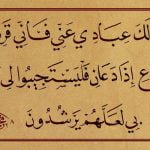 لَكَ عِبَادِي عَنِّي فَإِنِّي قَرِ
عِ إِذَا دَعَانِ فَلْيَسْتَجِيبُوا لِي
بِي لَعَلَّهُمْ يَرْشُدُونَ